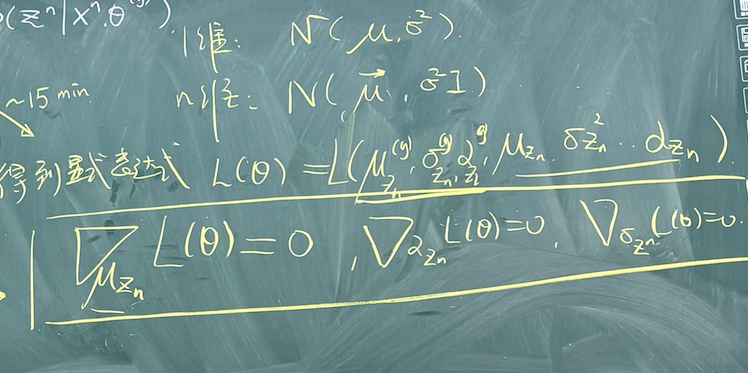 (z^n | x^n, θ^(g))
1维: N(μ, σ²).
~15 min
n维: N(μ⃗, σ²I)
得到显式表达式 L(θ) = L(μ_{z_n}^{(g)}, σ_{z_n}^{(g)}, α_{z_n}^{g}, μ_{z_n}, σ_{z_n}^2 .. α_{z_n}).
∇_{μ_{z_n}} L(θ) = 0, ∇_{α_{z_n}} L(θ) = 0, ∇_{σ_{z_n}} L(θ) = 0.